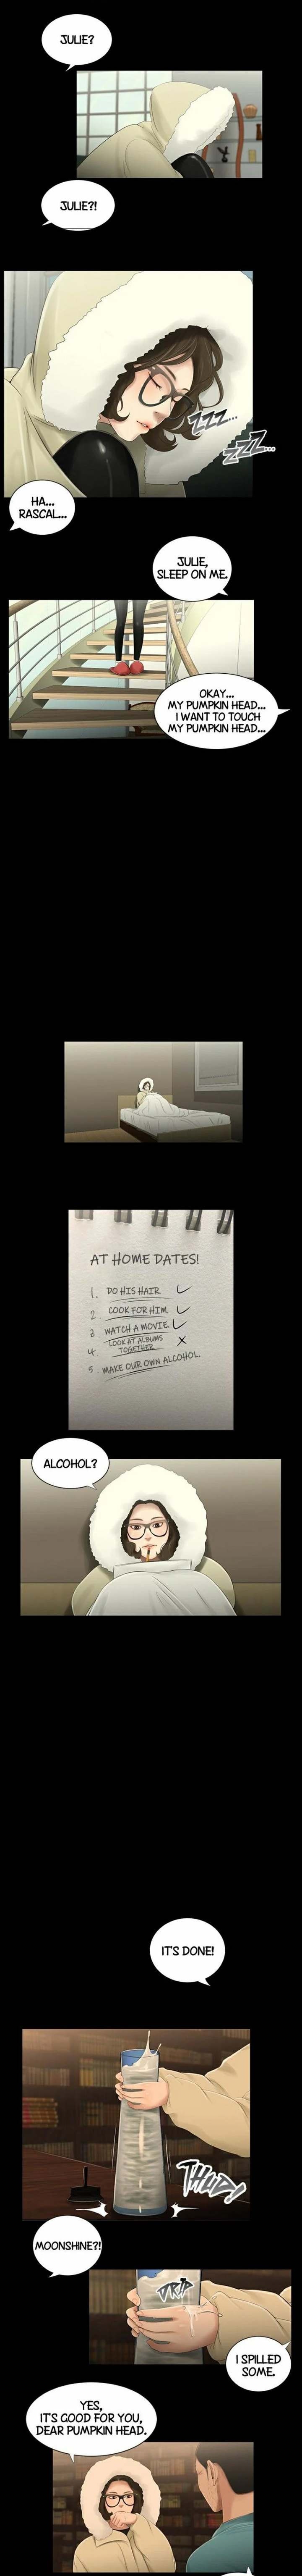 JULIE?
JULIE?!
ZZZ...
ZZZ...
HA...
RASCAL...
JULIE,
SLEEP ON ME.
OKAY...
MY PUMPKIN HEAD...
I WANT TO TOUCH
MY PUMPKIN HEAD...
AT HOME DATES!
1. DO HIS HAIR ✓
2 COOK FOR HIM. ✓
3 WATCH A MOVIE. ✓
4 LOOK AT ALBUMS
TOGETHER X
5. MAKE OUR OWN ALCOHOL.
ALCOHOL?
IT'S DONE!
THUD!
MOONSHINE?!
DRIP
I SPILLED
SOME.
YES,
IT'S GOOD FOR YOU,
DEAR PUMPKIN HEAD.